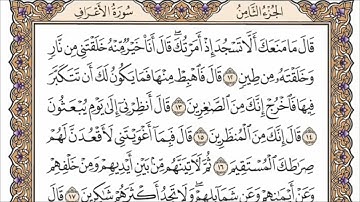 الجزء الثامن سورة الأعراف
قَالَ مَا مَنَعَكَ أَلَّا تَسْجُدَ إِذْ أَمَرْتُكَ ۖ قَالَ أَنَا۠ خَيْرٌ مِّنْهُ خَلَقْتَنِى مِن نَّارٍ
وَخَلَقْتَهُۥ مِن طِينٍ ١٢ قَالَ فَٱهْبِطْ مِنْهَا فَمَا يَكُونُ لَكَ أَن تَتَكَبَّرَ
فِيهَا فَٱخْرُجْ إِنَّكَ مِنَ ٱلصَّٰغِرِينَ ١٣ قَالَ أَنظِرْنِىٓ إِلَىٰ يَوْمِ يُبْعَثُونَ
١٤ قَالَ إِنَّكَ مِنَ ٱلْمُنظَرِينَ ١٥ قَالَ فَبِمَآ أَغْوَيْتَنِى لَأَقْعُدَنَّ لَهُمْ
صِرَٰطَكَ ٱلْمُسْتَقِيمَ ١٦ ثُمَّ لَـَٔاتِيَنَّهُم مِّنۢ بَيْنِ أَيْدِيهِمْ وَمِنْ خَلْفِهِمْ
وَعَنْ أَيْمَٰنِهِمْ وَعَن شَمَآئِلِهِمْ ۖ وَلَا تَجِدُ أَكْثَرَهُمْ شَٰكِرِينَ ١٧ قَالَ